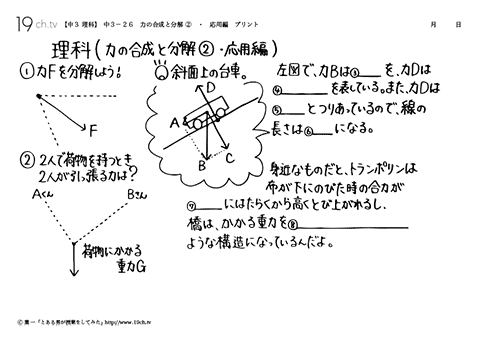 19ch.tv 【中3 理科】 中3-26 力の合成と分解② ・ 応用編 プリント 月 日
理科(力の合成と分解②・応用編)
①力Fを分解しよう!
F
②2人で荷物を持つとき
2人が引っ張る力は?
Aくん Bさん
荷物にかかる
重力G
斜面上の台車。
D
A
B
C
左図で、力Bは③を、力Dは
④を表している。また、力Dは
⑤とつりあっているので、線の
長さは⑥になる。
身近なものだと、トランポリンは
布が下にのびた時の合力が
⑦にはたらくから高くとび上がれるし、
橋は、かかる重力を⑧
ような構造になっているんだよ。
Ⓒ 葉一「とある男が授業をしてみた」http://www.19ch.tv